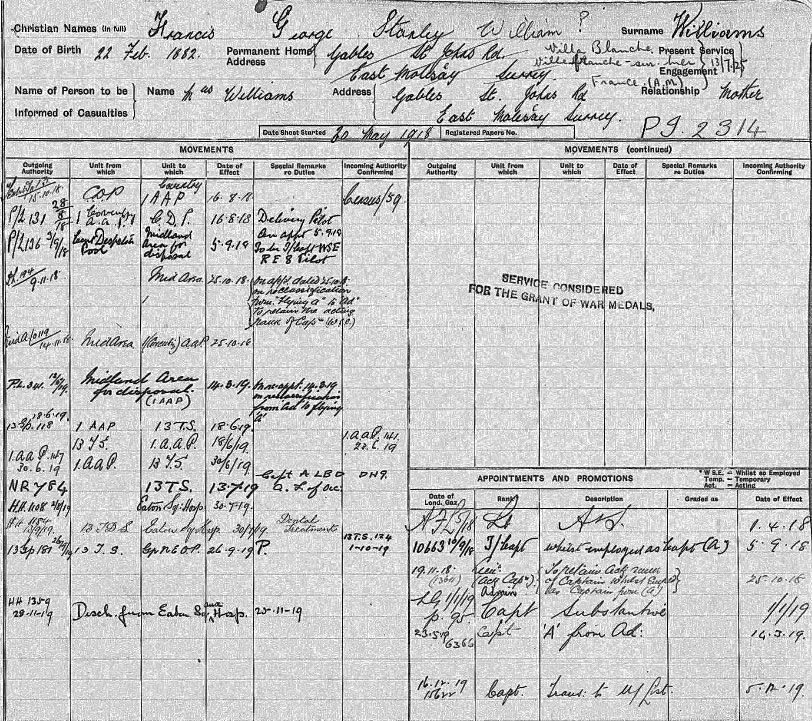 Christian Names (in full) Francis George Stanley William ? Surname Williams
Date of Birth 22 Feb. 1882. Permanent Home Address Gables St Johns Rd
East Molesey Surrey
Villa Blanche
Villefranche-sur-mer
France. (A.M)
Present Service Engagement 13/7/25
Name of Person to be Informed of Casualties Name Mrs Williams Address Gables St. Johns Rd
East Molesey Surrey.
Relationship Mother
Date Sheet Started 20 May 1918 Registered Papers No. P9.2314
MOVEMENTS
Outgoing Authority Unit from which Unit to which Date of Effect Special Remarks re Duties Incoming Authority Confirming
15.10.18 COP Coventry 1 AAP 16.8.18 Census/59
P/L 131 28/8/18 1 Coventry A.A.P. C.D.P. 16.8.18 Delivery Pilot
P/L 136 Cent Despatch Pool Midland Area for disposal 5.9.18 On appt 5.9.18
To be T/Capt WSE
RES Pilot
9.11.18 Mid Area. 25.10.18 on appt. dated 25.10.18
on reclassification
from "Flying A" to "Ad"
to retain the acting
rank of Capt (W.S.E.)
14.11.18 Mid Area (Coventry) AAP 25.10.18
Midland Area
for disposal.
(1 AAP)
14.3.19
on reclassification
from Ad to flying
A
18.6.19.
118 1 AAP 13 T.S. 18.6.19.
13 T.S. 1.A.A.P. 18/6/19. 1.A.A.P. 141.
22.6.19
1.A.A.P. 147
30.6.19 1.A.A.P. 13 T.S 30/6/19.
NR 784 13 T.S. 13.7.19 Capt A LBD DH9.
H.H. 1108 Eaton Sq. Hosp. 30.7.19.
H.H. 1184 13 T.D.S Eaton Sq Hosp 30/7/19. Dental
Treatment
13 Gp 181 13 T.S. 26.9.19 P. 13 T.S. 134
1-10-19
HH 1359
28-11-19 Disch. from Eaton Sq Hosp. 25-11-19
MOVEMENTS (continued)
Outgoing Authority Unit from which Unit to which Date of Effect Special Remarks re Duties Incoming Authority Confirming
SERVICE CONSIDERED
FOR THE GRANT OF WAR MEDALS.
APPOINTMENTS AND PROMOTIONS
* W.S.E. = Whilst so Employed
Temp. = Temporary
Act. = Acting
Date of Lond. Gaz. Rank Description Graded as Date of Effect
Lt 1.4.18
10663 10/9/18 T/Capt whilst employed as Capt (A) 5.9.18
19.11.18 Lieut.
(Actg Capt).
Admin
(To retain Actg rank
of Captain whilst Empld
as Captain from (A) 25.10.18
LG 1/1/19
p. 95 Capt Substantive 1/1/19
23.5.19
6366 Capt 'A' from Ad: 14.3.19.
16.12.19 Capt. Trans: to U/List. 5.12.19.